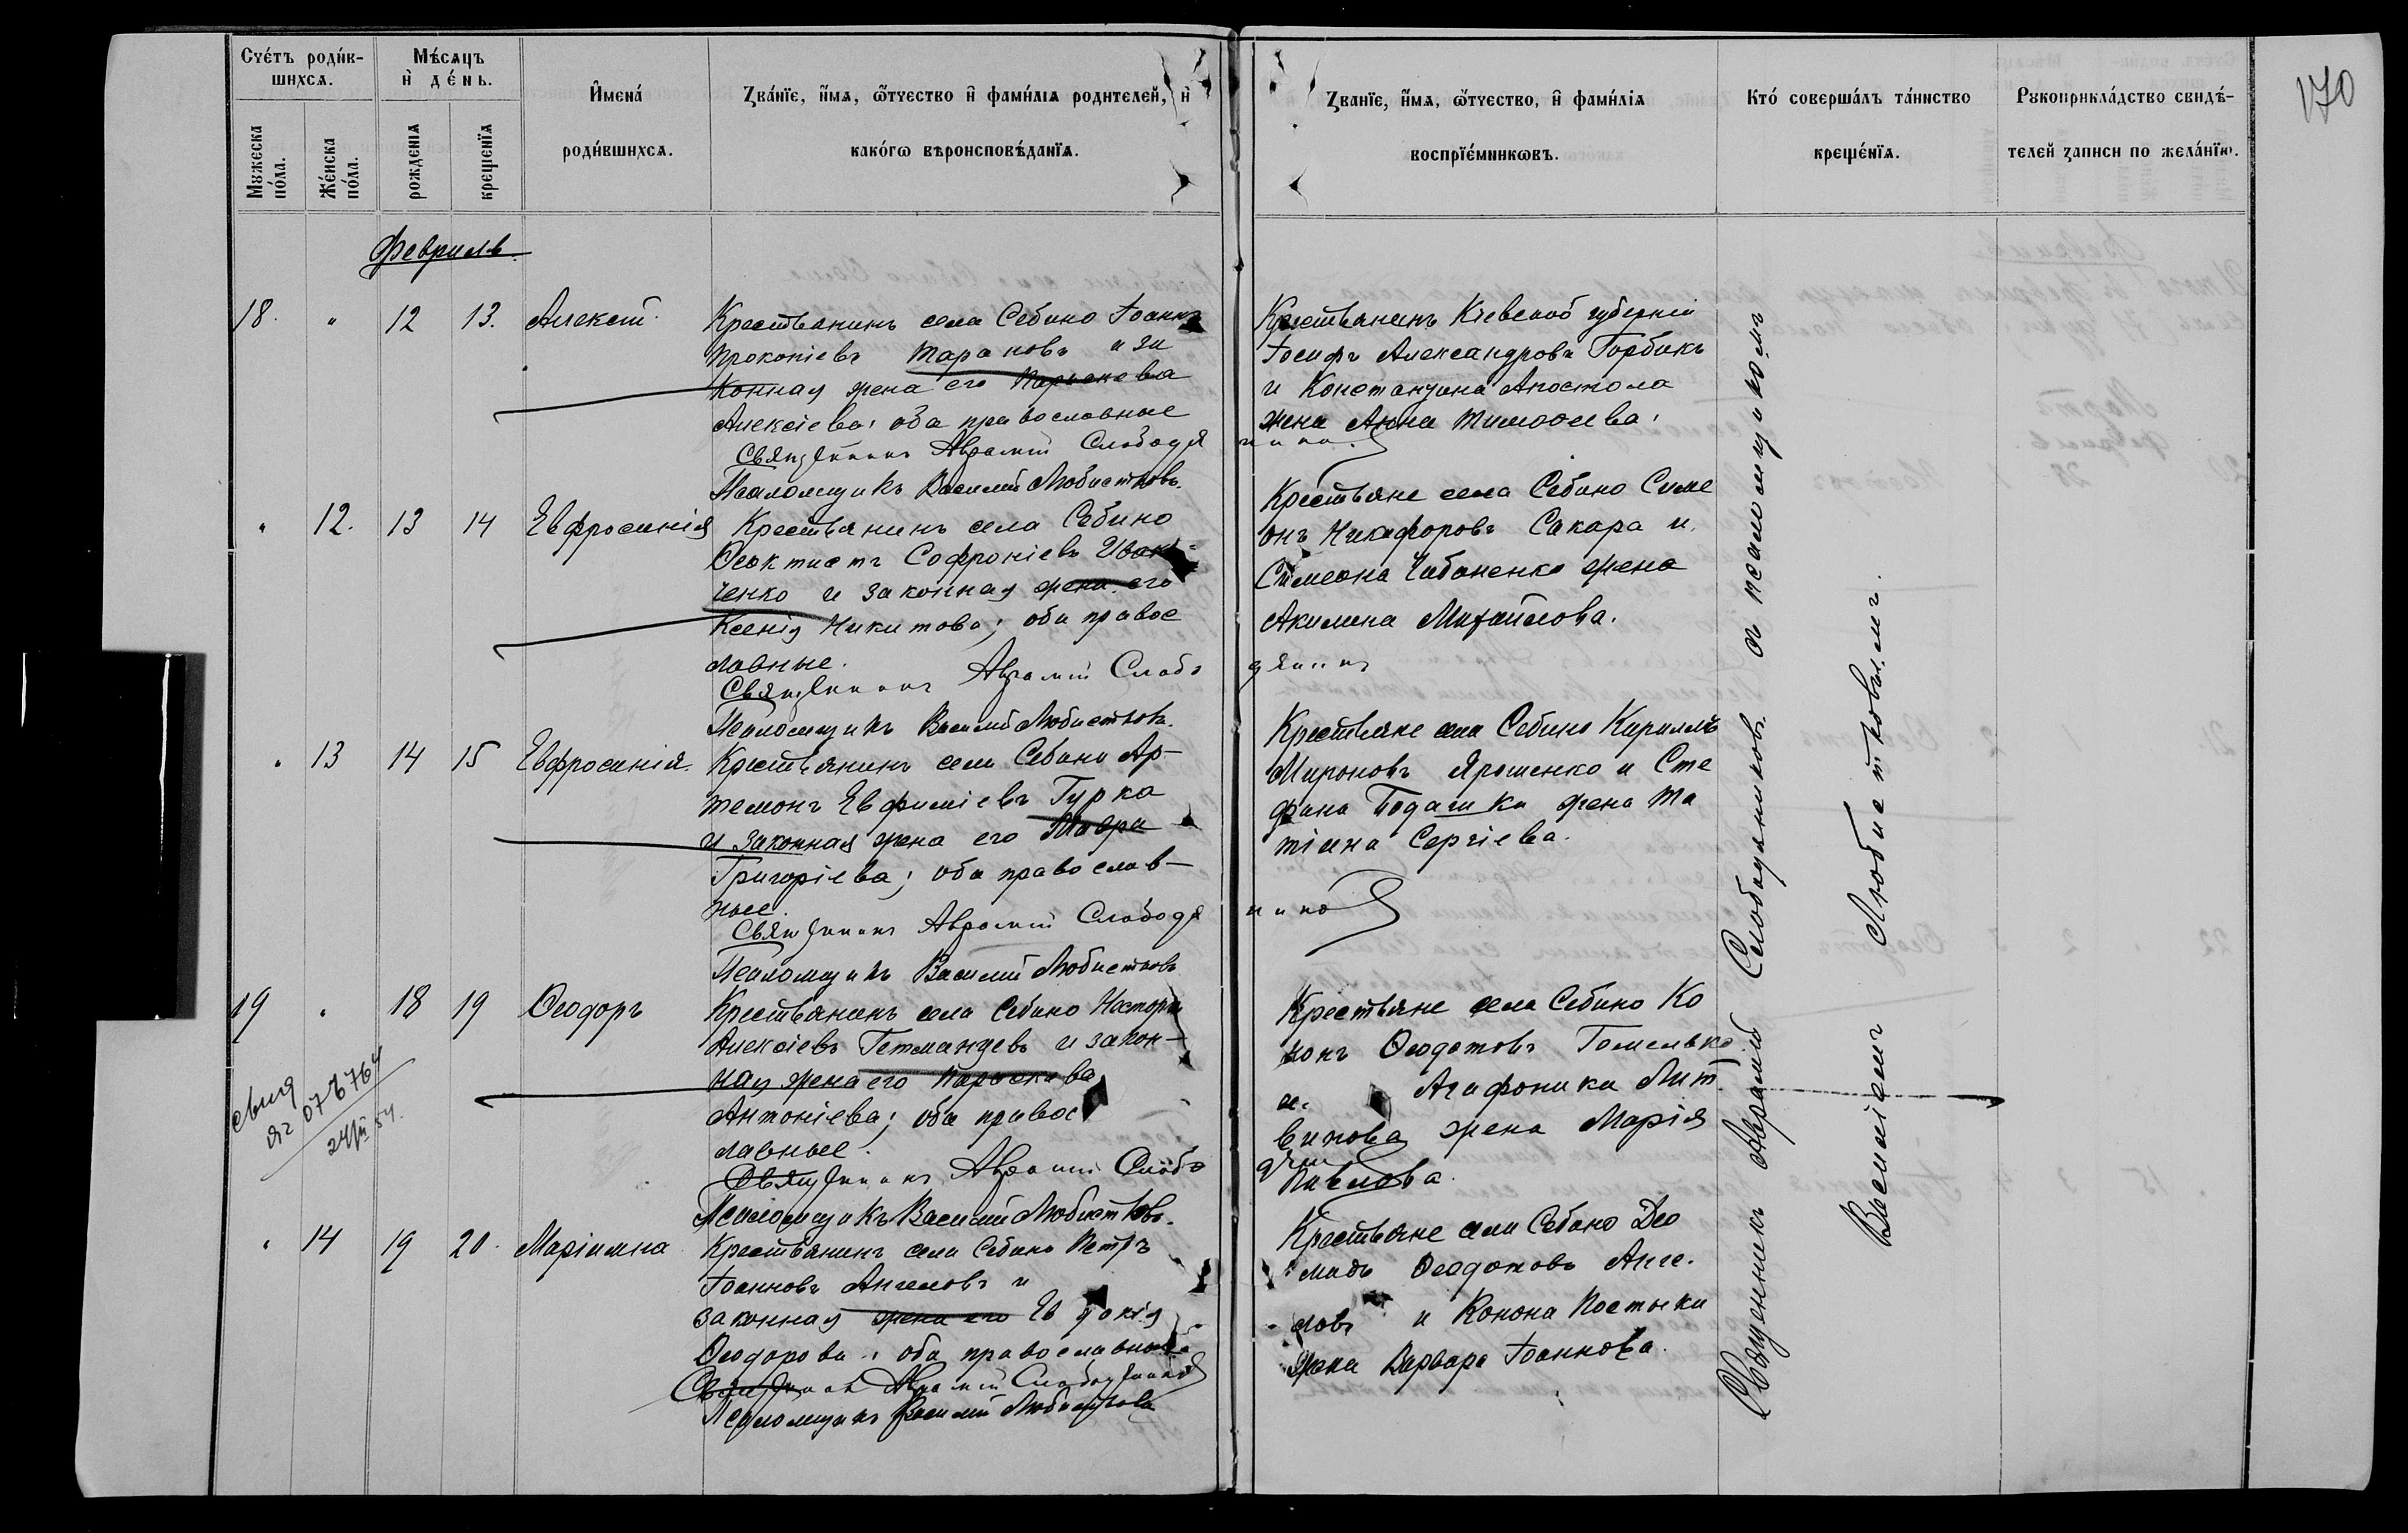 Счетъ родив-
шихся.
Мѣсяцъ
и день.
Мужеска
пола.
Женска
пола.
рожденія
крещенія
Имена
родившихся.
Званіе, имя, отчество и фамилія родителей, и
какого вѣроисповѣданія.
Званіе, имя, отчество, и фамилія
воспріемниковъ.
Кто совершалъ таинство
крещенія.
Рукоприкладство свидѣ-
телей записи по желанію.
170
Февраль.
18. " 12 13. Алексій
Крестьянинъ села Себино Іоаннъ
Прокопіевъ Тарановъ и за
конная жена его Параскева
Алексіева; оба православные
Священникъ Аврамій Слободя
никъ
Псаломщикъ Василій Любистковъ.
Крестьянинъ Кіевской губерніи
Іосифъ Александровъ Горбикъ
и Константина Апостола
жена Анна Тимоѳеева.
" 12. 13 14 Евфросинія
Крестьянинъ села Себино
Ѳеоктистъ Софроніевъ Иван-
ченко и законная жена его
Ксенія Никитова; оба правос
лавные.
Священникъ Аврамій Слобо
дяникъ
Псаломщикъ Василій Любистковъ.
Крестьяне села Себино Симе
онъ Никифоровъ Сакара и
Симеона Чабаненко жена
Акилина Михайлова.
" 13 14 15 Евфросинія.
Крестьянинъ села Себино Ар-
темонъ Евфиміевъ Гурка
и законная жена его Мавра
Григоріева; оба православ-
ные.
Священникъ Аврамій Слободя
никъ
Псаломщикъ Василій Любистковъ
Крестьяне села Себино Кириллъ
Мироновъ Ярошенко и Сте
фана жена Та
тіана Сергіева.
19 " 18 19 Ѳеодоръ
Крестьянинъ села Себино Несторъ
Алексіевъ Гетманцевъ и закон-
ная жена его Параскева
Антоніева; оба правос
лавные.
Священникъ Аврамій Слобо
Псаломщикъ Василій Любистковъ.
Крестьяне села Себино Ко
нонъ Ѳеодотовъ Гомелько
и Агафоника Лит
винова жена Марія
Павлова.
24/III 54.
" 14 19 20. Маріамна
Крестьянинъ села Себино Петръ
Іоанновъ Ангеловъ и
законная жена его Евдокія
Ѳеодорова; оба православные
Священникъ Аврамій Слободяникъ
Псаломщикъ Василій Любистковъ
Крестьяне села Себино Део
мидъ Ѳеодотовъ Анге-
ловъ и Конона Постыки
жена Варвара Іоаннова.
Священникъ Аврамій Слободяниковъ съ псаломщикомъ
Василіемъ Любистковымъ.